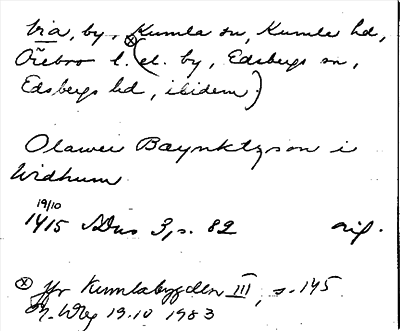 Via, by, Kumla sn, Kumla hd,
Örebro l. ⊗(el. by, Edsbergs sn,
Edsbergs hd, ibidem)
Olawer Baynktzson i
Widhum
19/10
1415 SDns 3, s. 82 orig.
⊗ Jfr Kumlabygden III, s. 145
19.10 1983